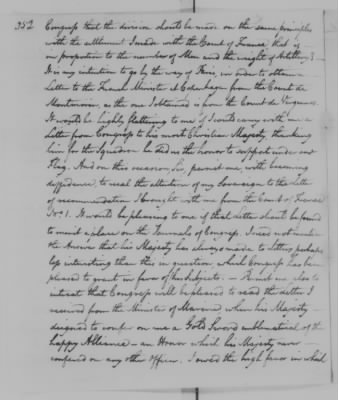 352
Congress that the division should be made on the same principles
with the settlement I made with the Court of France, that is
in proportion to the number of Men and the weight of Artillery.
It is my intention to go by the way of Paris, in order to obtain a
Letter to the French Minister at Copenhagen from the Count de
Montmorin, as the one I obtained is from the Count de Vergennes.
It would be highly flattering to me if I could carry with me a
Letter from Congress to his most Christian Majesty thanking
him for the Squadron he did us the honor to support under our
Flag. And on this occasion, Sir, permit me, with becoming
diffidence, to recal the attention of my Sovereign to the Letter
of recommendation I brought with me from the Court of France
It would be pleasing to me if that letter should be found
to merit a place on the Journals of Congress. I need not
the Answer that his Majesty has always made to letters perhaps
less interesting than this in question, which Congress has been
pleased to in favor of his subjects. Permit me also to
intreat that Congress will be pleased to read the letter I
received from the Minister of Marine, when his Majesty
deigned to confer on me a Gold Sword emblematical of the
happy Alliance - an Honor which his Majesty never
conferred on any other Officer. I owed the high favor in which